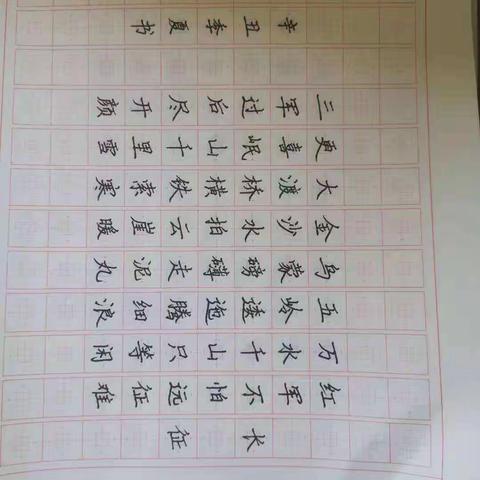 长征
红军不怕远征难
万水千山只等闲
五岭逶迤腾细浪
乌蒙磅礴走泥丸
金沙水拍云崖暖
大渡桥横铁索寒
更喜岷山千里雪
三军过后尽开颜
辛丑季夏书